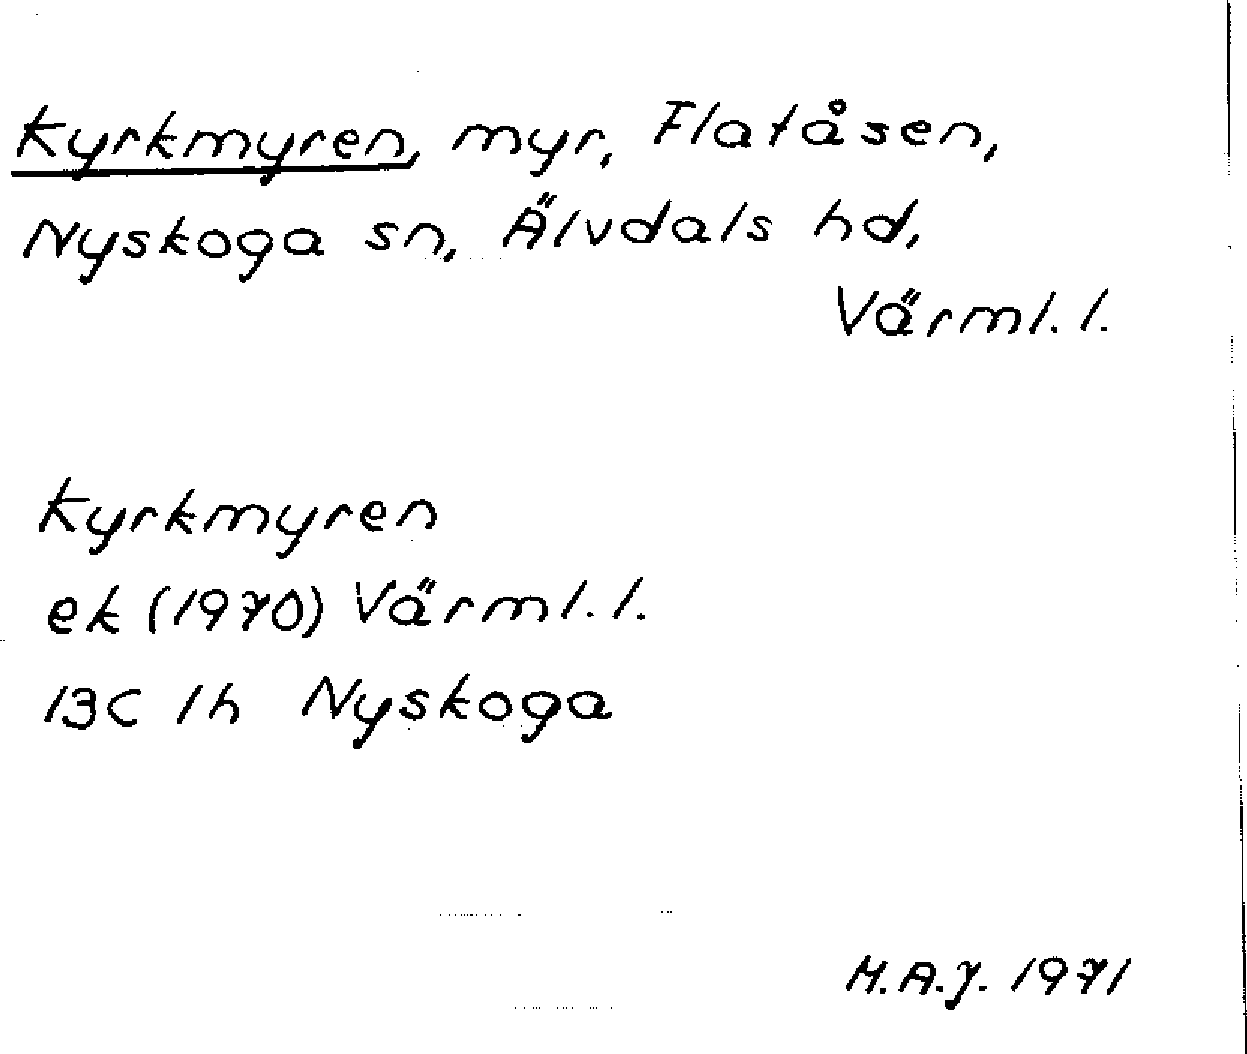 Kyrkmyren, myr, Flatåsen,
Nyskoga sn, Älvdals hd,
Värml. l.
Kyrkmyren
ek (1970) Värml. l.
13C 1h Nyskoga
M.A.J. 1971